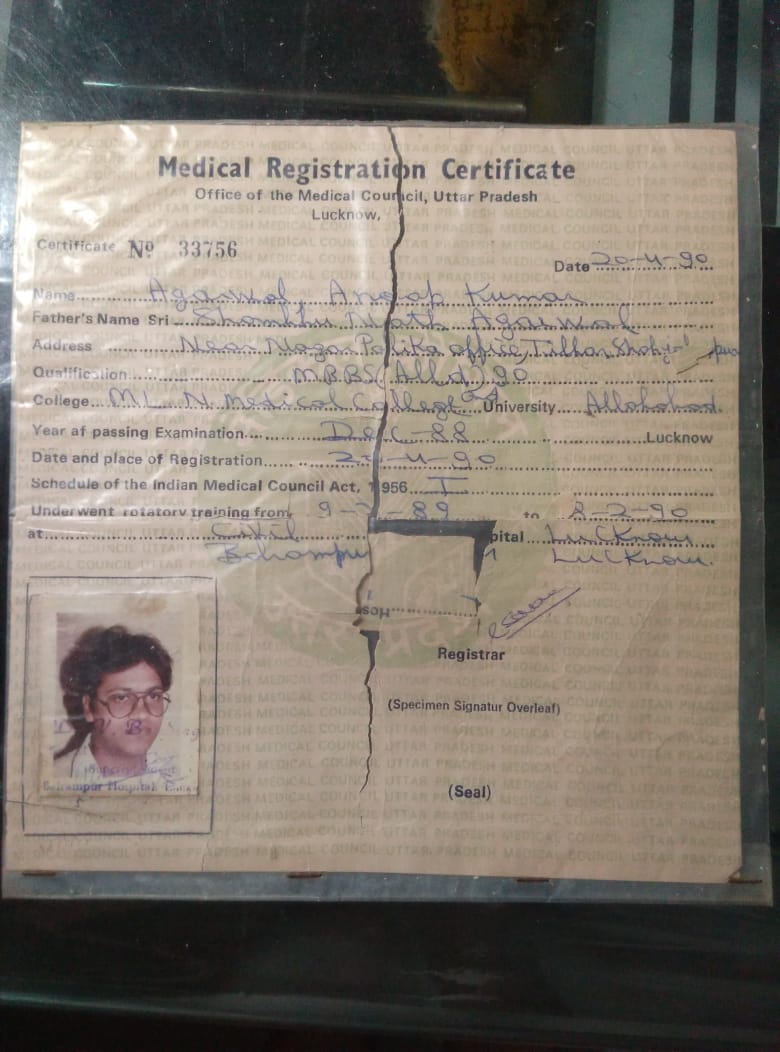 Medical Registration Certificate
Office of the Medical Council, Uttar Pradesh
Lucknow,
Certificate Nº 33756
Date 20-4-90
Name Agarwal, Anoop Kumar
Father's Name Sri Shambhu Nath Agarwal
Address Near Nagar Palika office, Tilhar Shahjahanpur
Qualification MBBS (Alld) 90
College M L N Medical College University Allahabad.
Year of passing Examination Dec-88 Lucknow
Date and place of Registration 20-4-90
Schedule of the Indian Medical Council Act, 1956 I
Underwent rotatory training from 9-2-89 to 8-2-90
at Civil pital Lucknow
Lucknow.
Hos
Registrar
(Specimen Signatur Overleaf)
(Seal)